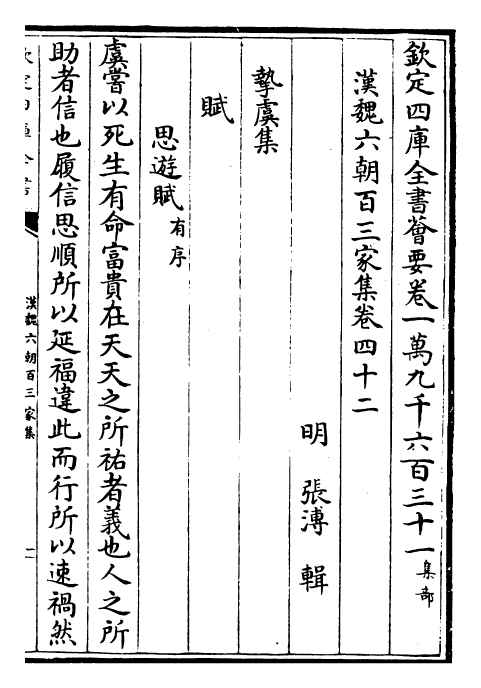 欽定四庫全書薈要卷一萬九千六百三十一集部
漢魏六朝百三家集卷四十二
明張溥輯
摯虞集
賦
思遊賦有序
虞嘗以死生有命富貴在天天之所祐者義也人之所
助者信也履信思順所以延福違此而行所以速禍然
欽定四庫全書
漢魏六朝百三家集
一